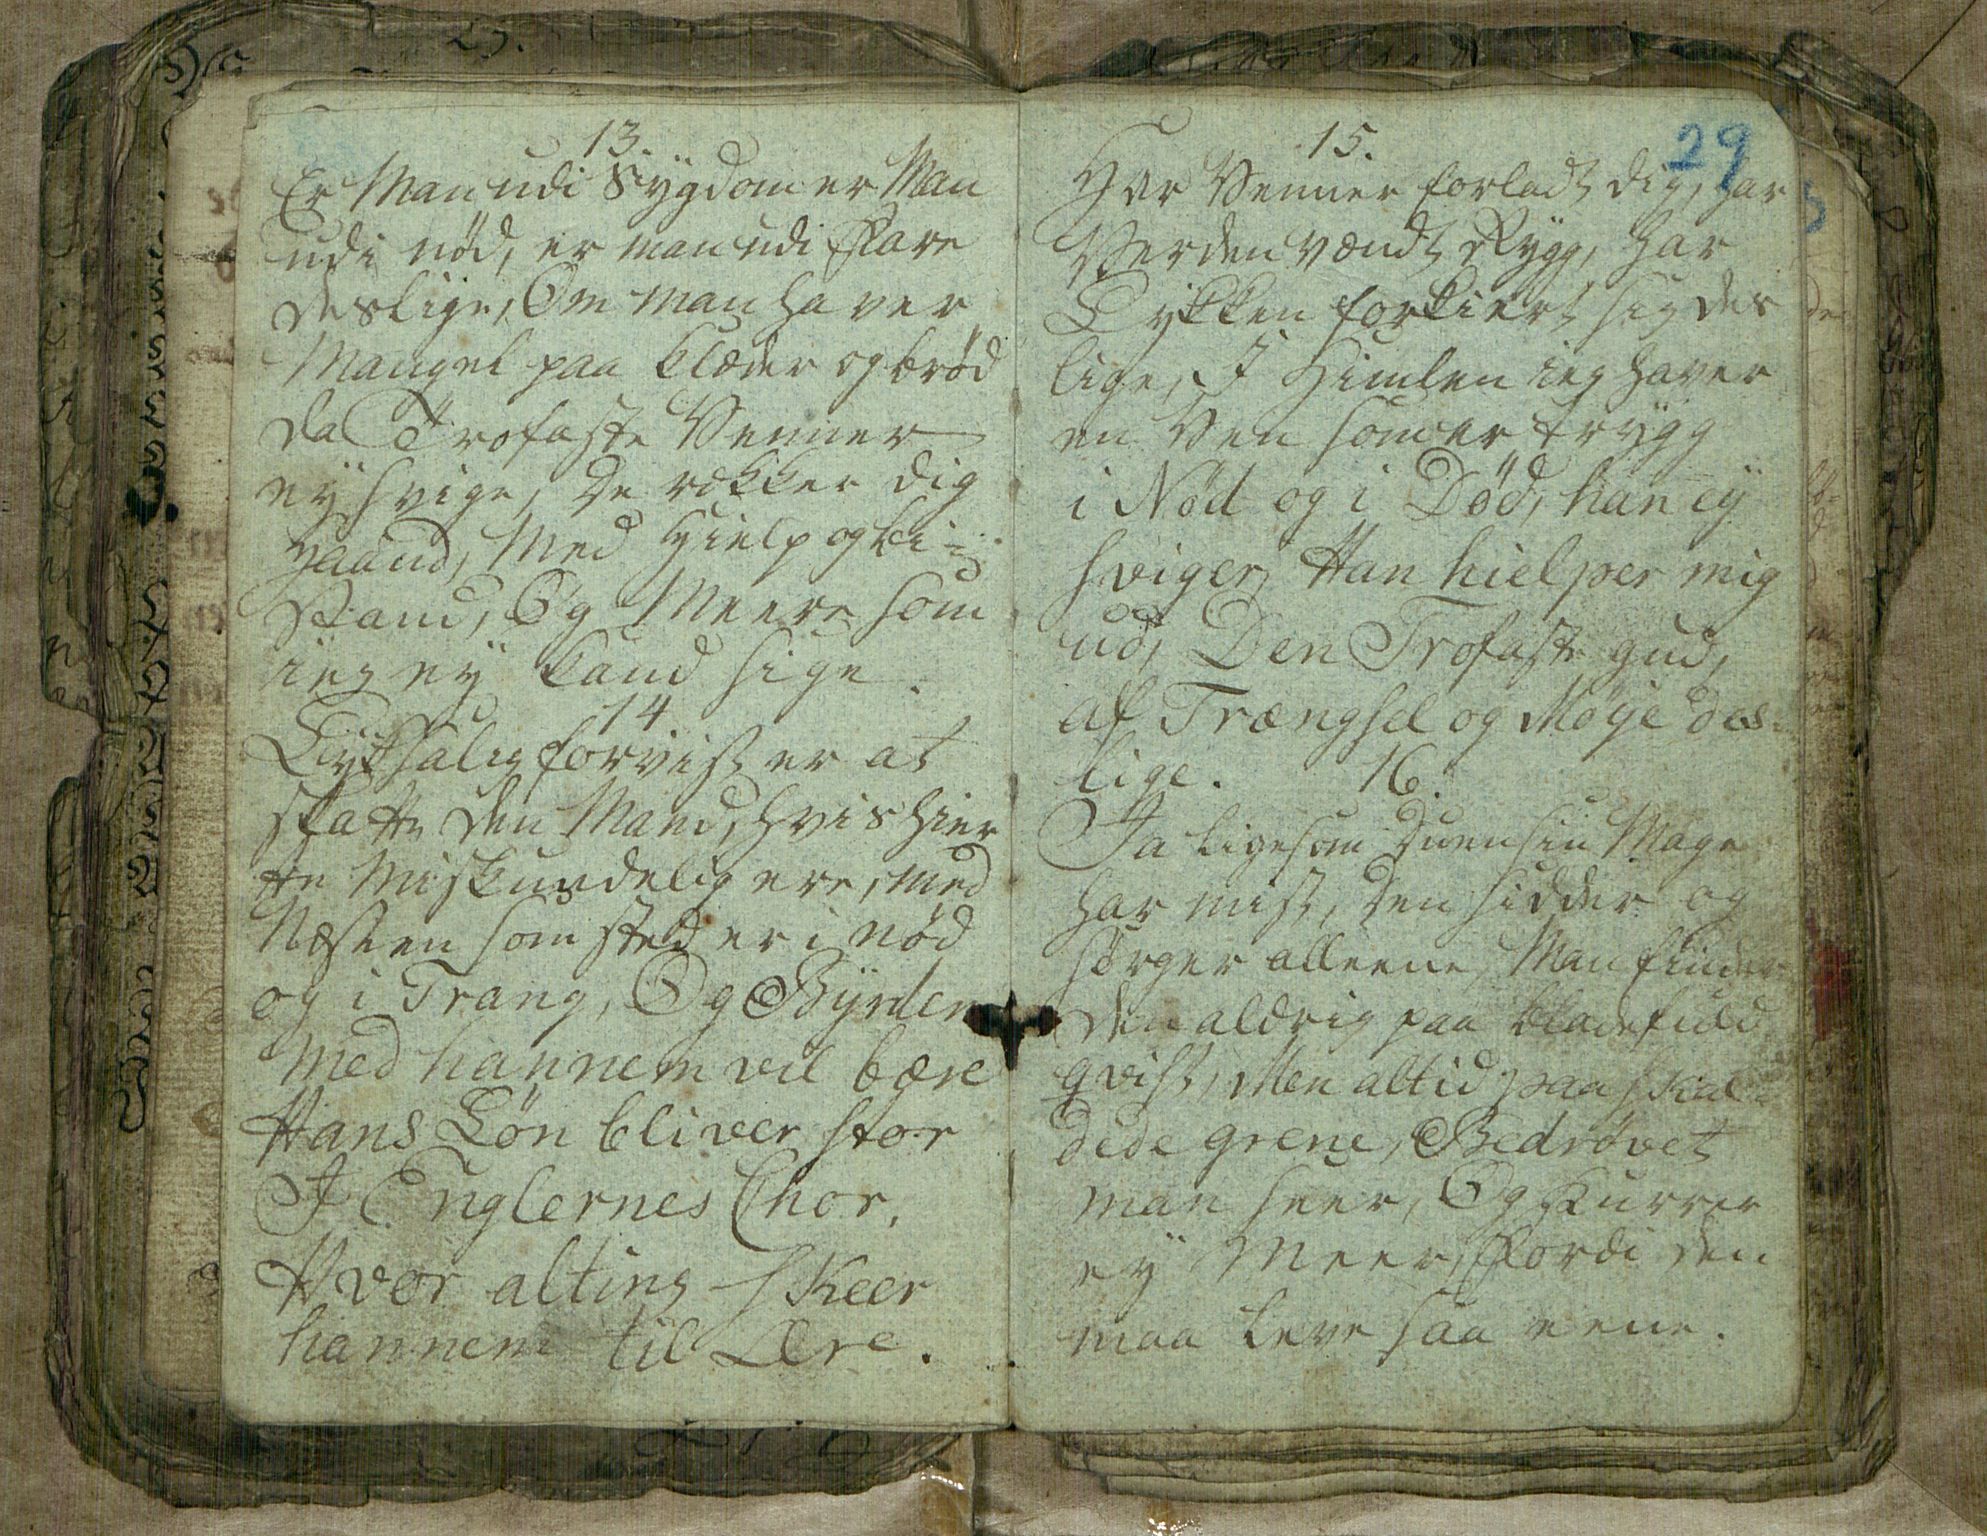 13.
Er Man udi Sÿgdom er Man
udi nöd, er man udi Fare
deslige, Om man haver
Mangel paa klæder og bröd
da Trofaste Venner
eÿ svige, de rekker dig
Haand, Med Hielp og bi-
stand, Og Meere som
ieg eÿ kand sige.
14
Lÿksalig forvist er at
skatte den Mand, hvis hier
te Miskundelig ere, med
Næsten som sted er i nöd
og i Trang, Og Bÿrden
med hannem vil bære
Hans Lön bliver stor
I Englernes Chor,
Hvor alting skeer
hannem til Ære.
29
15.
Har Venner forladt dig, har
Verden vændt Rÿgg, har
Lykken forkiert sig des
lige, I Himlen ieg haver
en Ven som er trÿgg
i Nöd og i Död, han eÿ
sviger, Han hielper mig
ud, Den Trofaste gud,
af Trængsel og Möÿe des-
lige.
16.
Ja ligesom Duen sin Mage
har mist, den sidder og
sörger alleene, Man finder
den aldrig paa bladefuld
qvist, Men altid paa skal-
dede grene, Bedrövet
man seer, Og Kurrer
eÿ Meer, Fordi den
maa leve saa eene.